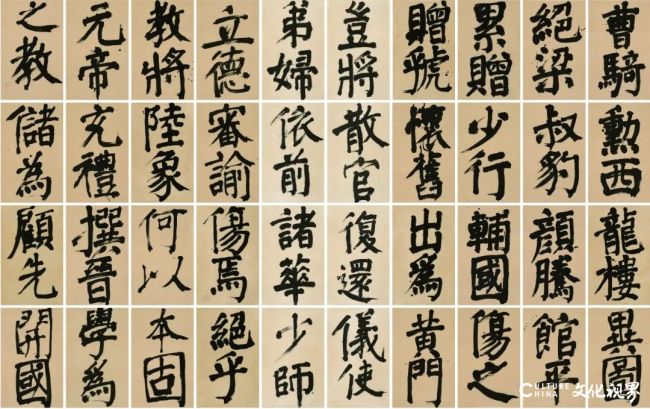 曹騎
絕梁
累贈
贈號
豈將
弟婦
立德
教將
元帝
之教
勲西
叔豹
少行
懷舊
散官
依前
審諭
陸象
充禮
儲為
龍樓
顏騰
輔國
出為
復還
諸華
傷焉
何以
撰晉
顧先
館平
傷之
黄門
儀使
少師
絕乎
本固
學為
開國
CULTURE
CHINA
文化视界